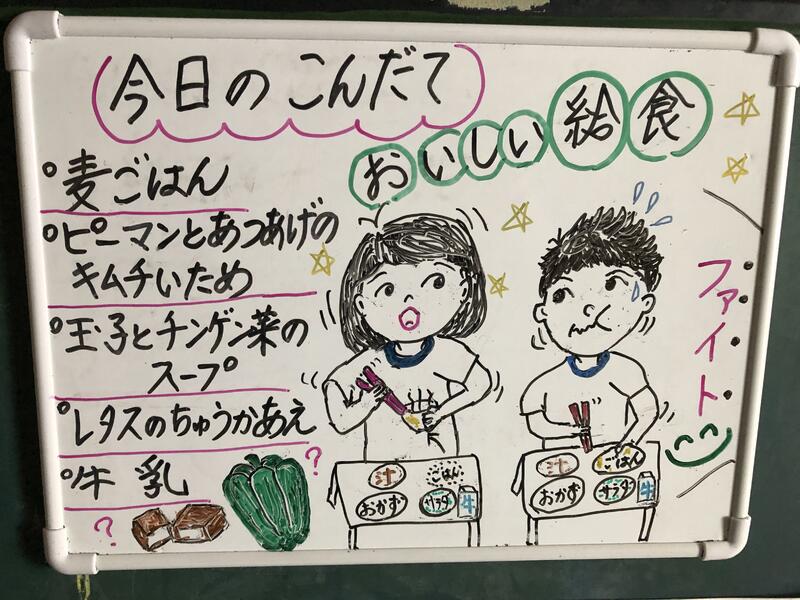 今日のこんだて
おいしい給食
°麦ごはん
°ピーマンとあつあげの
キムチいため
°玉子とチンゲン菜の
スープ
°レタスのちゅうかあえ
°牛乳
?
?
ファイト
汁
ごはん
おかず
サラダ
牛
汁
ごはん
おかず
サラダ
牛